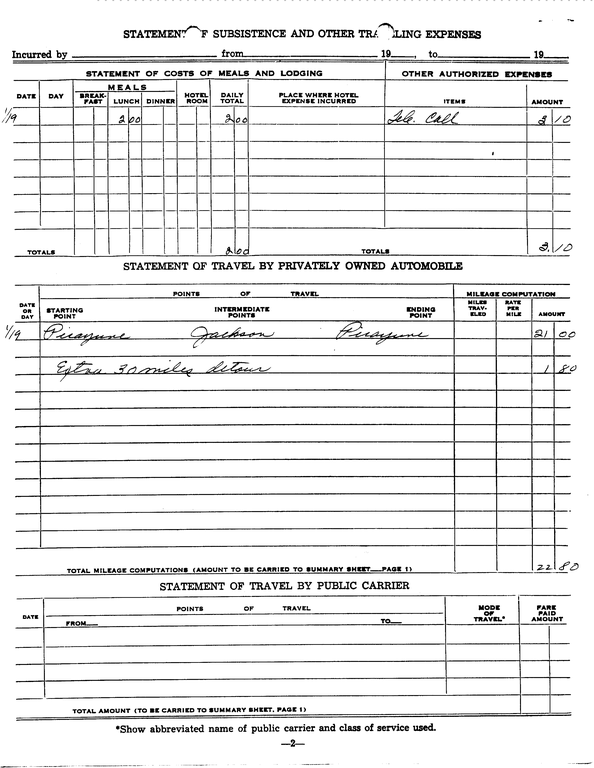 STATEMENT OF SUBSISTENCE AND OTHER TRAVELING EXPENSES
Incurred by from 19 , to 19
STATEMENT OF COSTS OF MEALS AND LODGING OTHER AUTHORIZED EXPENSES
DATE DAY MEALS BREAK-FAST LUNCH DINNER HOTEL ROOM DAILY TOTAL PLACE WHERE HOTEL EXPENSE INCURRED ITEMS AMOUNT
1/19 2 00 2 00 Tele. Call 3 10
TOTALS 2 00 TOTALS 3.10
STATEMENT OF TRAVEL BY PRIVATELY OWNED AUTOMOBILE
DATE OR DAY POINTS OF TRAVEL MILEAGE COMPUTATION
STARTING POINT INTERMEDIATE POINTS ENDING POINT MILES TRAV-ELED RATE PER MILE AMOUNT
1/19 Picayune Jackson Picayune 21 00
Extra 30 miles detour 1 80
TOTAL MILEAGE COMPUTATIONS (AMOUNT TO BE CARRIED TO SUMMARY SHEET—PAGE 1) 22 80
STATEMENT OF TRAVEL BY PUBLIC CARRIER
DATE POINTS OF TRAVEL MODE OF TRAVEL* FARE PAID AMOUNT
FROM— TO—
TOTAL AMOUNT (TO BE CARRIED TO SUMMARY SHEET, PAGE 1)
*Show abbreviated name of public carrier and class of service used.
—2—